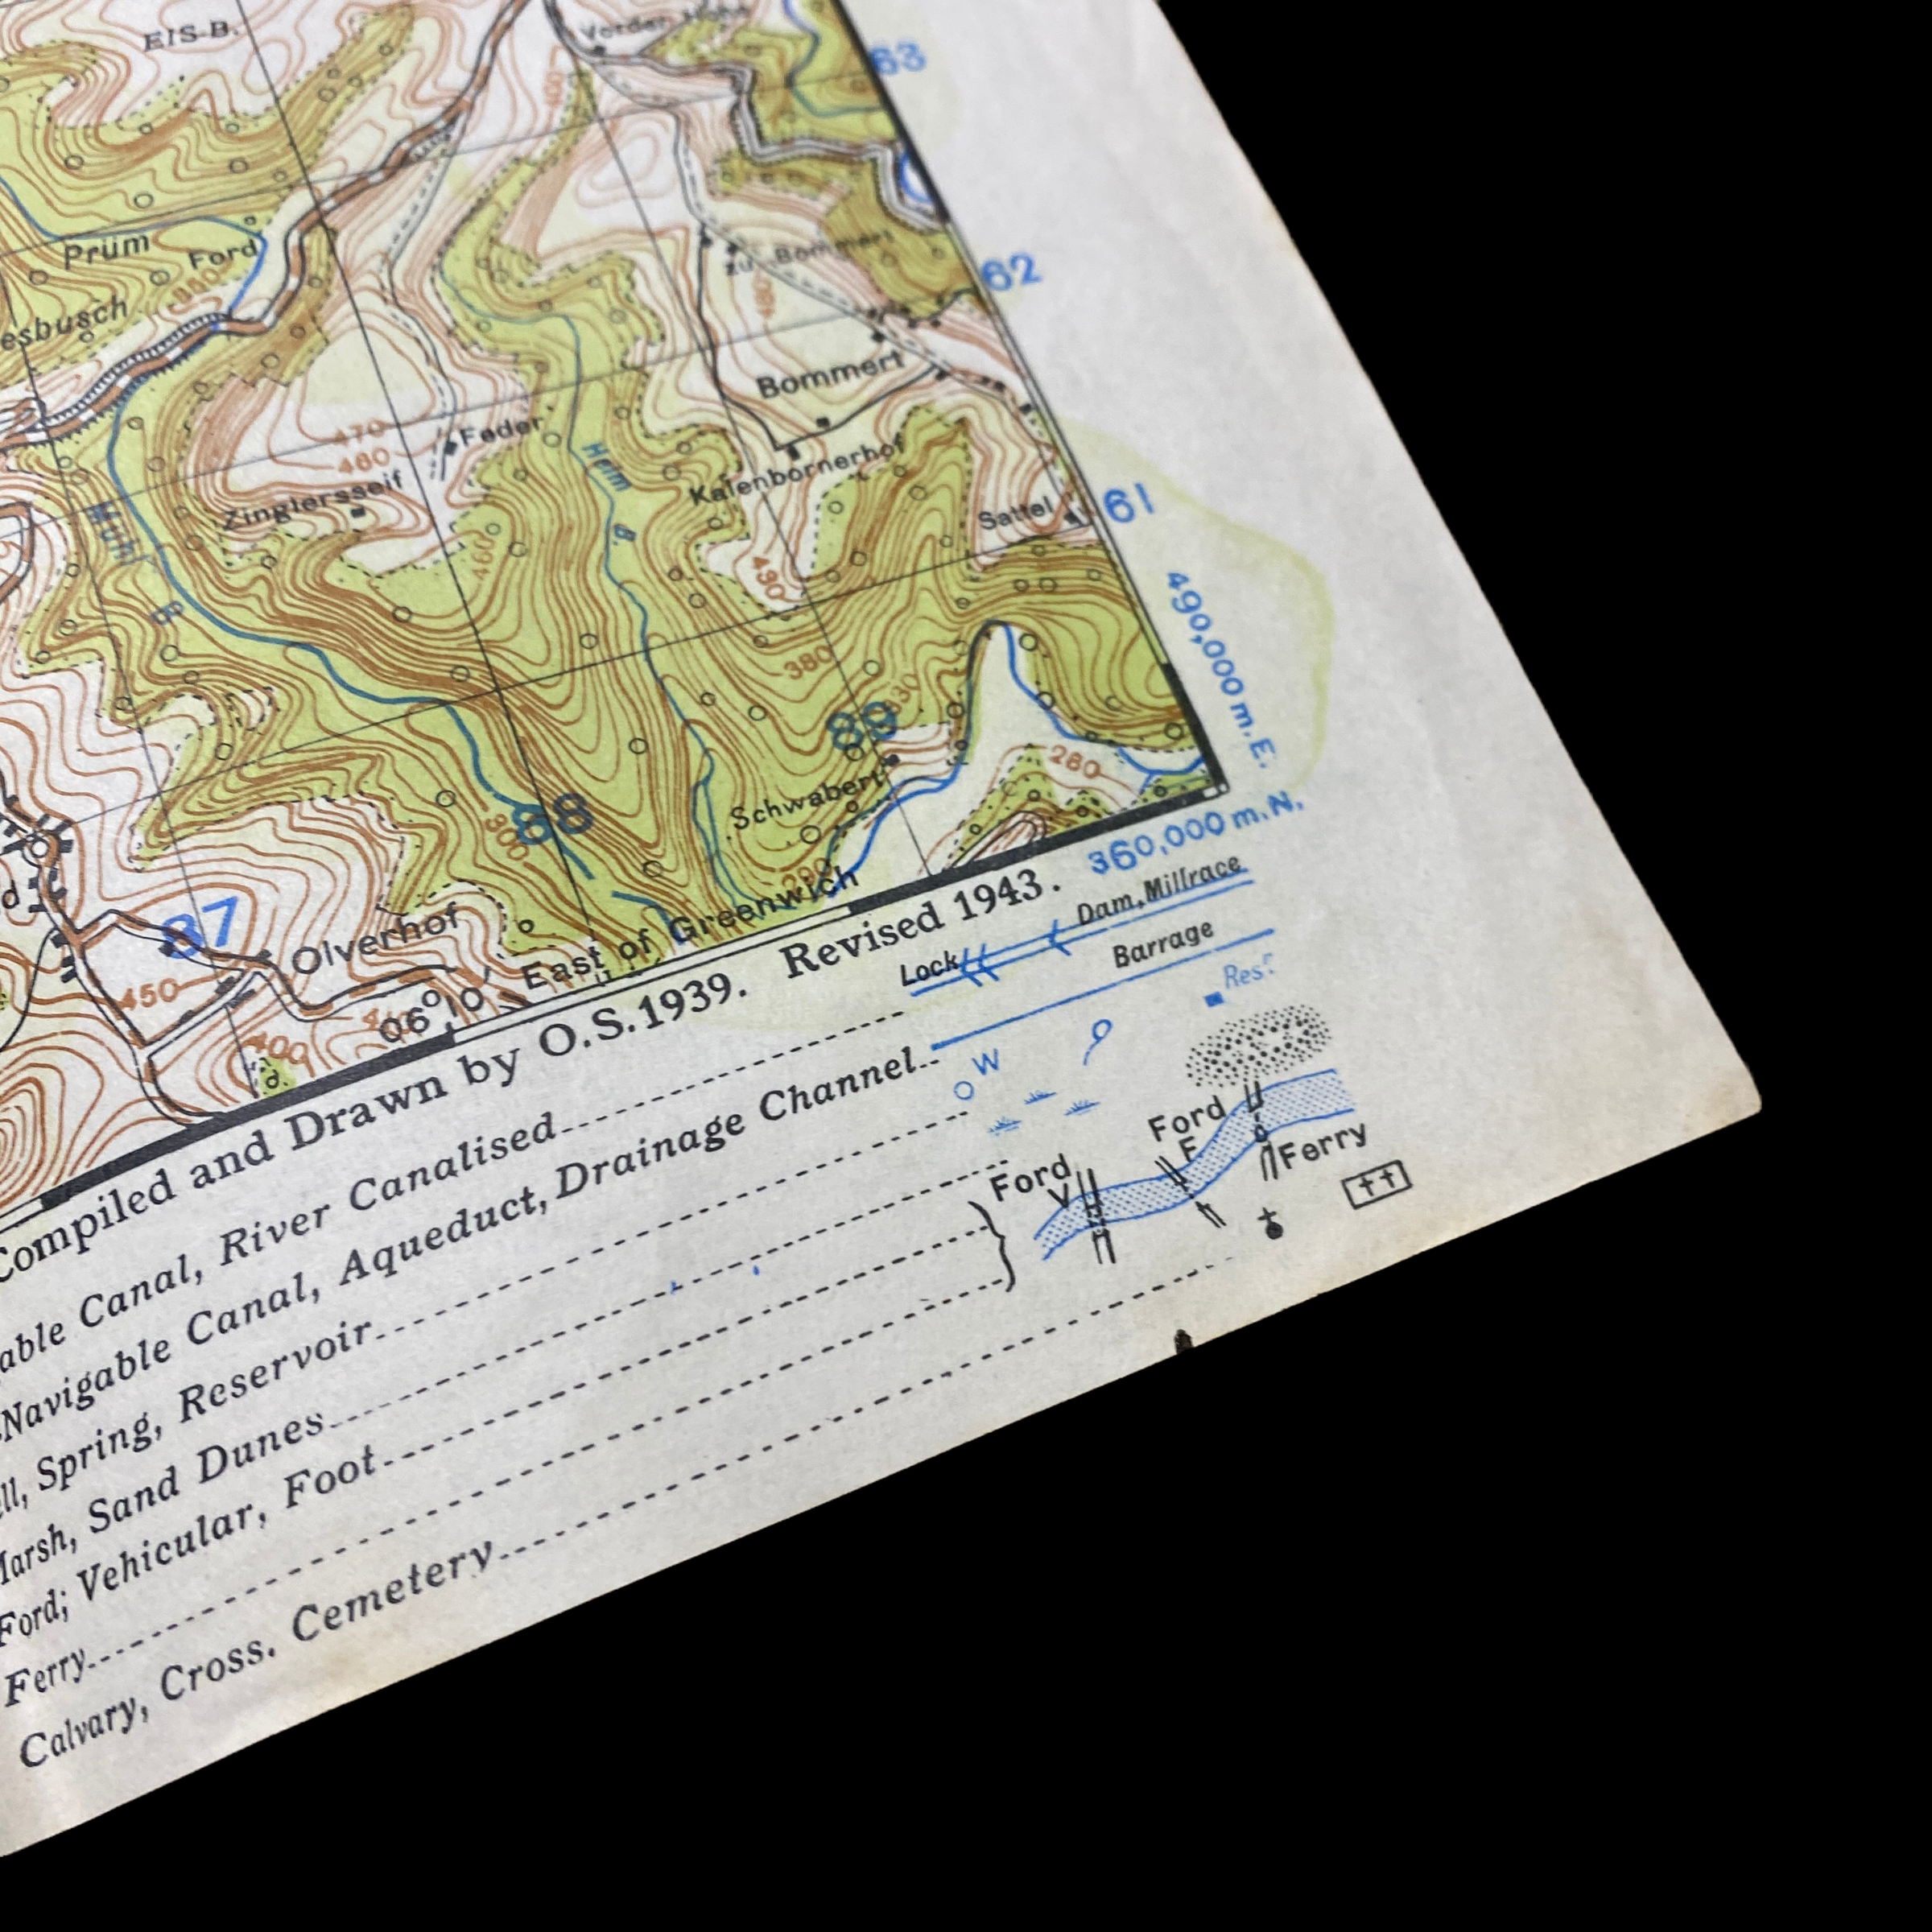 EIS-B.
63
Prüm
Ford
62
esbusch
Bommert
470
Feder
480
Zinglersseif
Kalenbornerhof
Heim
B.
Sattel
61
Mühl
B.
460
430
490,000 m.E.
380
89
280
Schwabert
88
300
360,000 m.N.
87
Olverhof
450
400
d.
06°10' East of Greenwich
Compiled and Drawn by O.S. 1939. Revised 1943.
able Canal, River Canalised
Lock
Dam, Millrace
Navigable Canal, Aqueduct, Drainage Channel
Barrage
ll, Spring, Reservoir
W
Resr.
Marsh, Sand Dunes
Ford; Vehicular, Foot
Ford
V
Ford
F
Ferry
Ferry
Calvary, Cross. Cemetery